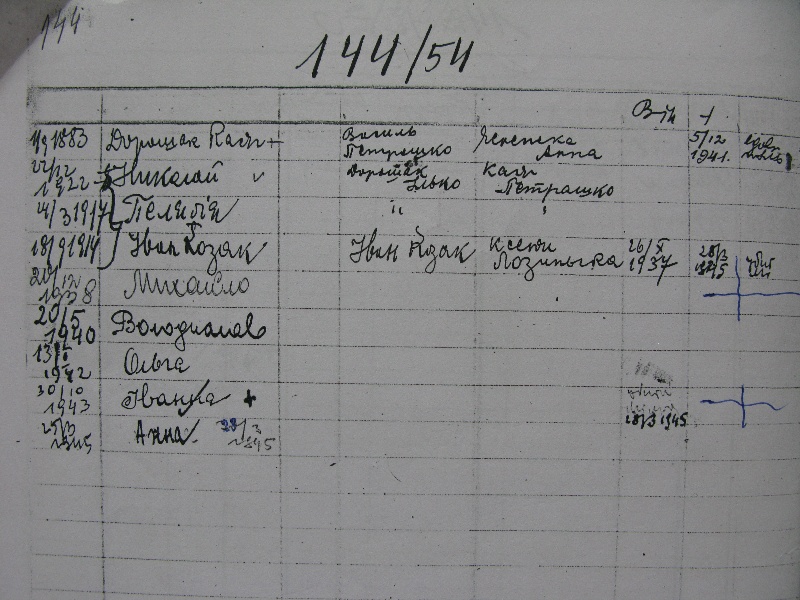 144
144/54
Він +
1883 Дорошак Катя + Василь Петрашко Анна 5/12 1941
22/12 1922 Николай Дорошак Ілько Катя Петрашко
4/3 1917 Пелягія " "
18/9 1914 Іван Козак Іван Козак Ксеня 26/X 1937 28/3 1945
20/12 1938 Михайло
20/5 1940 Володислав
13/I 1942 Ольга
30/10 1943 Іванка +
28/3 1945
1945 Анна 28/3 1945